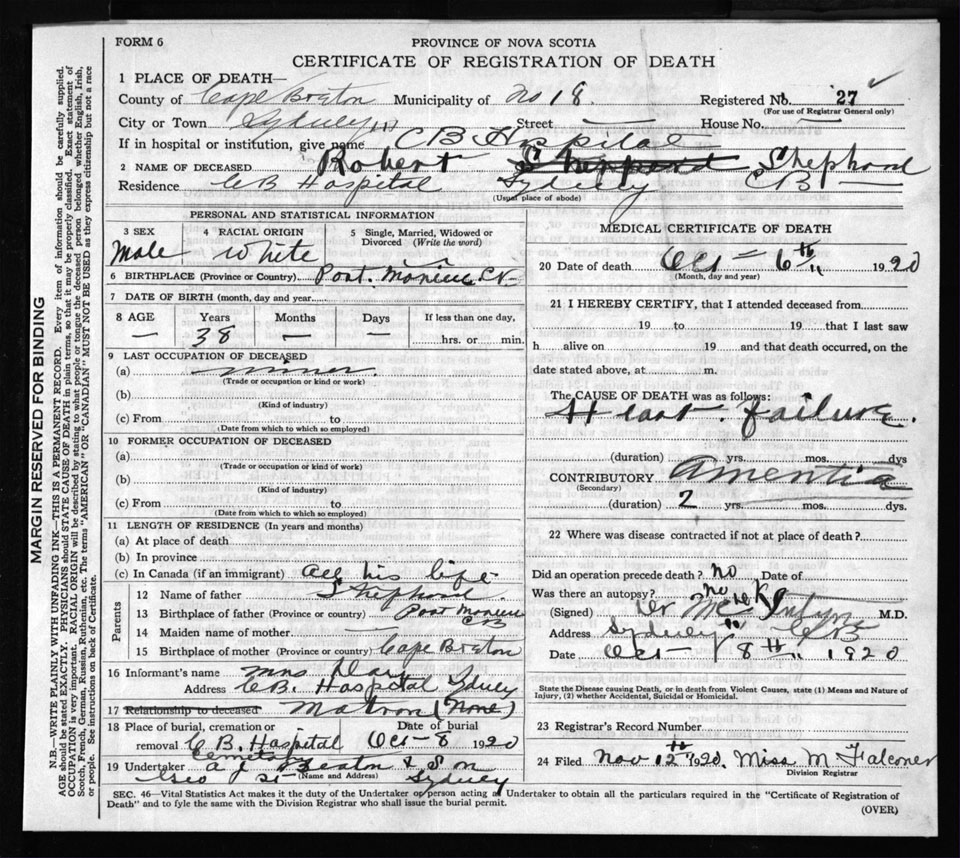 FORM 6
PROVINCE OF NOVA SCOTIA
CERTIFICATE OF REGISTRATION OF DEATH
MARGIN RESERVED FOR BINDING
N.B.—WRITE PLAINLY WITH UNFADING INK—THIS IS A PERMANENT RECORD. Every item of information should be carefully supplied.
AGE should be stated EXACTLY. PHYSICIANS should STATE CAUSE OF DEATH in plain terms, so that it may be properly classified. Exact statement of
OCCUPATION is very important. RACIAL ORIGIN will be described by stating to what people or tongue the deceased person belonged whether English, Irish,
Scotch, French, German, Russian, Ruthenian, etc. The terms "AMERICAN" OR "CANADIAN" MUST NOT BE USED as they express citizenship but not a race
or people. See instructions on back of Certificate.
1 PLACE OF DEATH—
County of Cape Breton Municipality of No 18. Registered No. 27
(For use of Registrar General only)
City or Town Sydney Street — House No. —
If in hospital or institution, give name C B Hospital
2 NAME OF DECEASED Robert Sheppard Shephard
Residence C B Hospital Sydney CB —
(Usual place of abode)
PERSONAL AND STATISTICAL INFORMATION
3 SEX 4 RACIAL ORIGIN 5 Single, Married, Widowed or
Divorced (Write the word)
Male White
6 BIRTHPLACE (Province or Country) Port Morien CB
7 DATE OF BIRTH (month, day and year)
8 AGE Years Months Days If less than one day,
— 38 — — hrs. or min.
9 LAST OCCUPATION OF DECEASED
(a) miner.
(Trade or occupation or kind or work)
(b)
(Kind of industry)
(c) From to
(Date from which to which so employed)
10 FORMER OCCUPATION OF DECEASED
(a)
(Trade or occupation or kind of work)
(b)
(Kind of industry)
(c) From to
(Date from which to which so employed)
11 LENGTH OF RESIDENCE (In years and months)
(a) At place of death
(b) In province
(c) In Canada (if an immigrant) all his life
Parents
12 Name of father Shephard.
13 Birthplace of father (Province or country) Port Morien CB
14 Maiden name of mother —
15 Birthplace of mother (Province or country) Cape Breton
16 Informant's name Mrs Day
Address C B. Hospital Sydney
17 Relationship to deceased Matron (None)
18 Place of burial, cremation or Date of burial
removal C B. Hospital Oct - 8 1920
Cemetery
19 Undertaker A J Beaton & Son
(Name and Address)
Geo St — Sydney
MEDICAL CERTIFICATE OF DEATH
20 Date of death Oct — 6th 1920
(Month, day and year)
21 I HEREBY CERTIFY, that I attended deceased from
19 to 19 that I last saw
h alive on 19 and that death occurred, on the
date stated above, at m.
The CAUSE OF DEATH was as follows:
Heart failure.
(duration) yrs. mos. dys
CONTRIBUTORY Amentia
(Secondary)
(duration) 2 yrs. mos. dys.
22 Where was disease contracted if not at place of death?
Did an operation precede death? No Date of
Was there an autopsy? no
(Signed) Dr M.D.
Address Sydney CB
Date Oct 8th 1920
State the Disease causing Death, or in death from Violent Causes, state (1) Means and Nature of
Injury, (2) whether Accidental, Suicidal or Homicidal.
23 Registrar's Record Number
24 Filed Nov 12th 1920. Miss M Falconer
Division Registrar
SEC. 46—Vital Statistics Act makes it the duty of the Undertaker or person acting as Undertaker to obtain all the particulars required in the "Certificate of Registration of
Death" and to fyle the same with the Division Registrar who shall issue the burial permit.
(OVER)